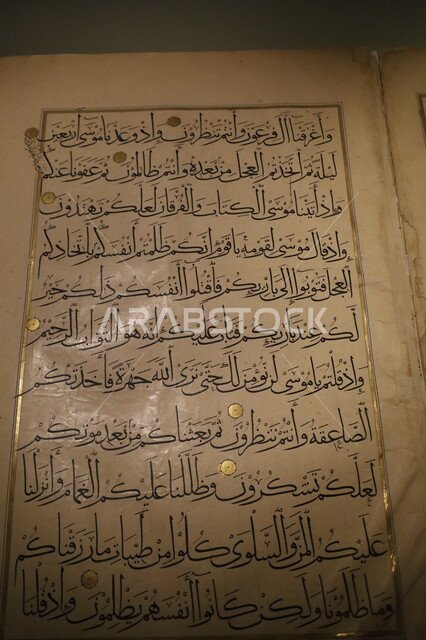 وأغرقنا آل فرعون وأنتم تنظرون وإذ وعدنا موسى أربعين
ليلة ثم اتخذتم العجل من بعده وأنتم ظالمون ثم عفونا عنكم
وإذ آتينا موسى الكتاب والفرقان لعلكم تهتدون
وإذ قال موسى لقومه يا قوم إنكم ظلمتم أنفسكم باتخاذكم
العجل فتوبوا إلى بارئكم فاقتلوا أنفسكم ذلكم خير
لكم عند بارئكم فتاب عليكم إنه هو التواب الرحيم
ARABSTOCK
وإذ قلتم يا موسى لن نؤمن لك حتى نرى الله جهرة فأخذتكم
الصاعقة وأنتم تنظرون ثم بعثناكم من بعد موتكم
لعلكم تشكرون وظللنا عليكم الغمام وأنزلنا
عليكم المن والسلوى كلوا من طيبات ما رزقناكم
وما ظلمونا ولكن كانوا أنفسهم يظلمون وإذ قلنا